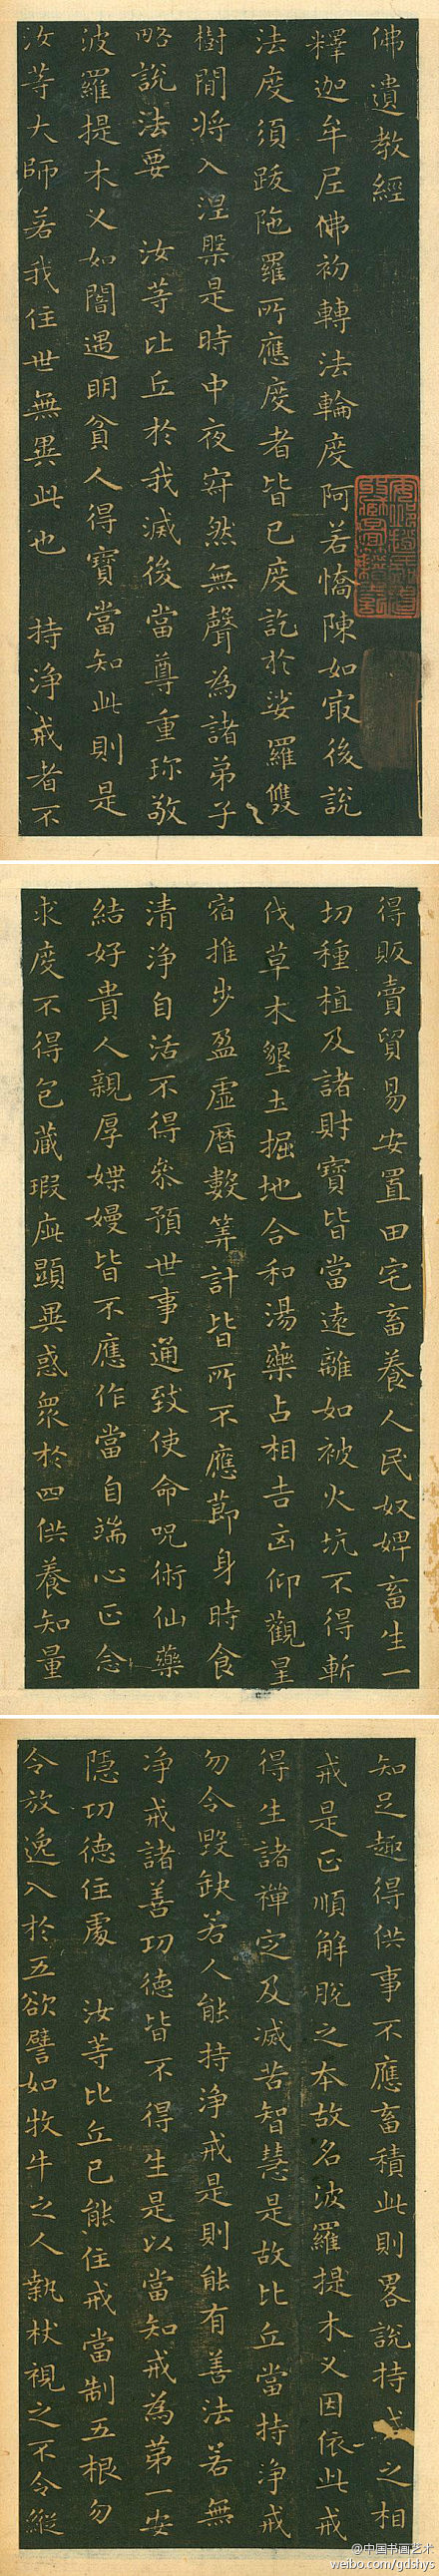 佛遺教經
釋迦牟尼佛初轉法輪度阿若憍陳如㝡後說
法度須跋陁羅所應度者皆已度訖於娑羅雙
樹間將入涅槃是時中夜寂然無聲為諸弟子
略說法要 汝等比丘於我滅後當尊重珎敬
波羅提木义如闇遇明貧人得寶當知此則是
汝等大師若我住世無異此也 持淨戒者不
得販賣貿易安置田宅畜養人民奴婢畜生一
切種植及諸財寶皆當遠離如被火坑不得斬
伐草木墾土掘地合和湯藥占相吉凶仰觀星
宿推步盈虛曆數筭計皆所不應節身時食
清淨自活不得參預世事通致使命呪術仙藥
結好貴人親厚媟嫚皆不應作當自端心正念
求度不得包藏瑕疵顯異惑衆於四供養知量
知足趣得供事不應畜積此則畧說持戒之相
戒是正順解脫之本故名波羅提木义因依此戒
得生諸禪定及滅苦智慧是故比丘當持淨戒
勿令毀缺若人能持淨戒是則能有善法若無
淨戒諸善功德皆不得生是以當知戒為第一安
隱功德住處 汝等比丘已能住戒當制五根勿
令放逸入於五欲譬如牧牛之人執杖視之不令縱
@中国书画艺术
weibo.com/gdshys